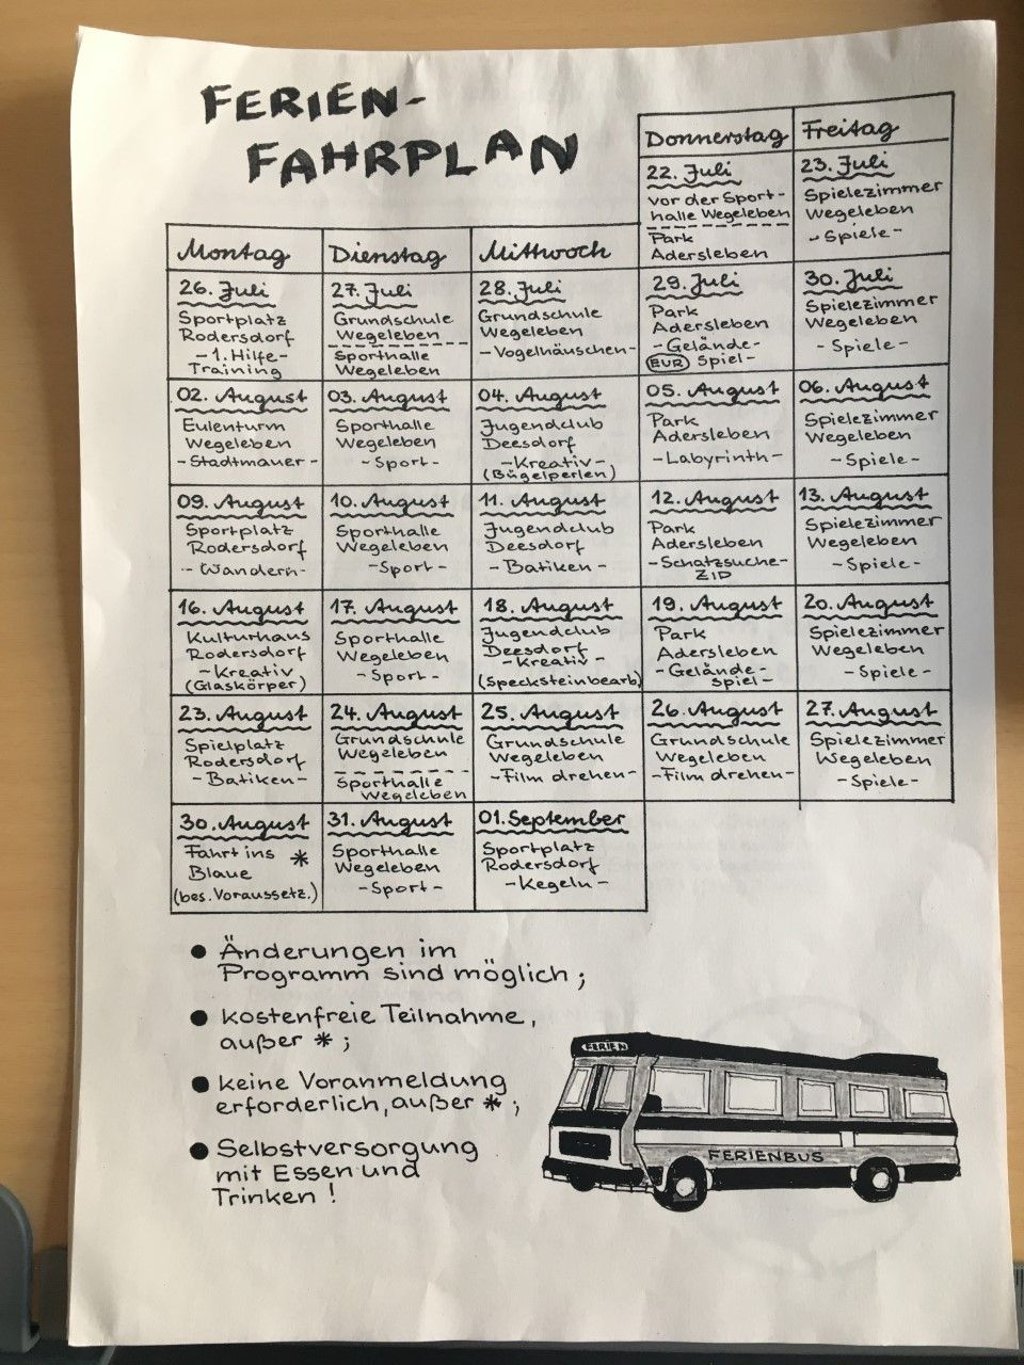 FERIEN-
FAHRPLAN
Donnerstag
Freitag
22. Juli
vor der Sport-
halle Wegeleben
Park
Adersleben
23. Juli
Spielezimmer
Wegeleben
- Spiele -
Montag
Dienstag
Mittwoch
26. Juli
Sportplatz
Rodersdorf
- 1. Hilfe -
Training
27. Juli
Grundschule
Wegeleben
Sporthalle
Wegeleben
28. Juli
Grundschule
Wegeleben
- Vogelhäuschen -
29. Juli
Park
Adersleben
- Gelände-
EUR Spiel -
30. Juli
Spielezimmer
Wegeleben
- Spiele -
02. August
Eulenturm
Wegeleben
- Stadtmauer -
03. August
Sporthalle
Wegeleben
- Sport -
04. August
Jugendclub
Deesdorf
- Kreativ -
(Bügelperlen)
05. August
Park
Adersleben
- Labyrinth -
06. August
Spielezimmer
Wegeleben
- Spiele -
09. August
Sportplatz
Rodersdorf
- Wandern -
10. August
Sporthalle
Wegeleben
- Sport -
11. August
Jugendclub
Deesdorf
- Batiken -
12. August
Park
Adersleben
- Schatzsuche -
ZiD
13. August
Spielezimmer
Wegeleben
- Spiele -
16. August
Kulturhaus
Rodersdorf
- Kreativ
(Glaskörper)
17. August
Sporthalle
Wegeleben
- Sport -
18. August
Jugendclub
Deesdorf
- Kreativ -
(Specksteinbearb)
19. August
Park
Adersleben
- Gelände-
spiel -
20. August
Spielezimmer
Wegeleben
- Spiele -
23. August
Spielplatz
Rodersdorf
- Batiken -
24. August
Grundschule
Wegeleben
Sporthalle
Wegeleben
25. August
Grundschule
Wegeleben
- Film drehen -
26. August
Grundschule
Wegeleben
- Film drehen -
27. August
Spielezimmer
Wegeleben
- Spiele -
30. August
Fahrt ins *
Blaue
(bes. Voraussetz.)
31. August
Sporthalle
Wegeleben
- Sport -
01. September
Sportplatz
Rodersdorf
- Kegeln -
● Änderungen im
Programm sind möglich;
● kostenfreie Teilnahme,
außer *;
● keine Voranmeldung
erforderlich, außer *;
● Selbstversorgung
mit Essen und
Trinken!
FERIEN
FERIENBUS